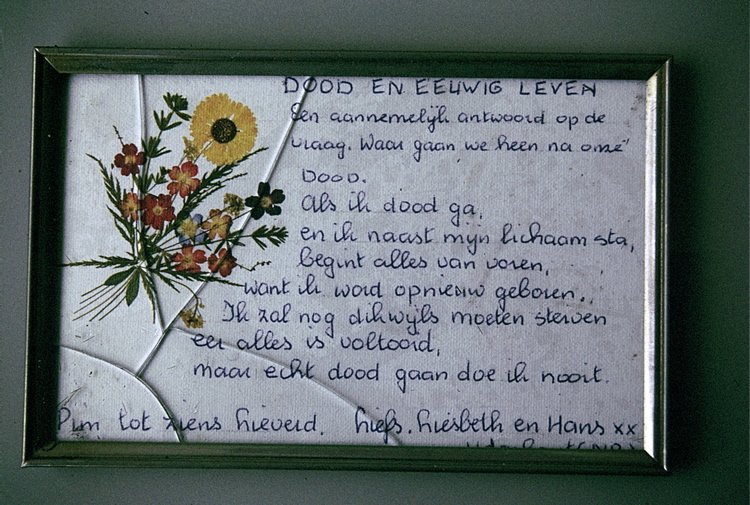 DOOD EN EEUWIG LEVEN
Een aannemelijk antwoord op de
vraag. Waar gaan we heen na onze"
DOOD.
Als ik dood ga,
en ik naast mijn lichaam sta,
begint alles van voren,
want ik word opnieuw geboren..
Ik zal nog dikwijls moeten sterven
eer alles is voltooid,
maar echt dood gaan doe ik nooit.
Pim tot ziens lieverd. liefs. Liesbeth en Hans xx